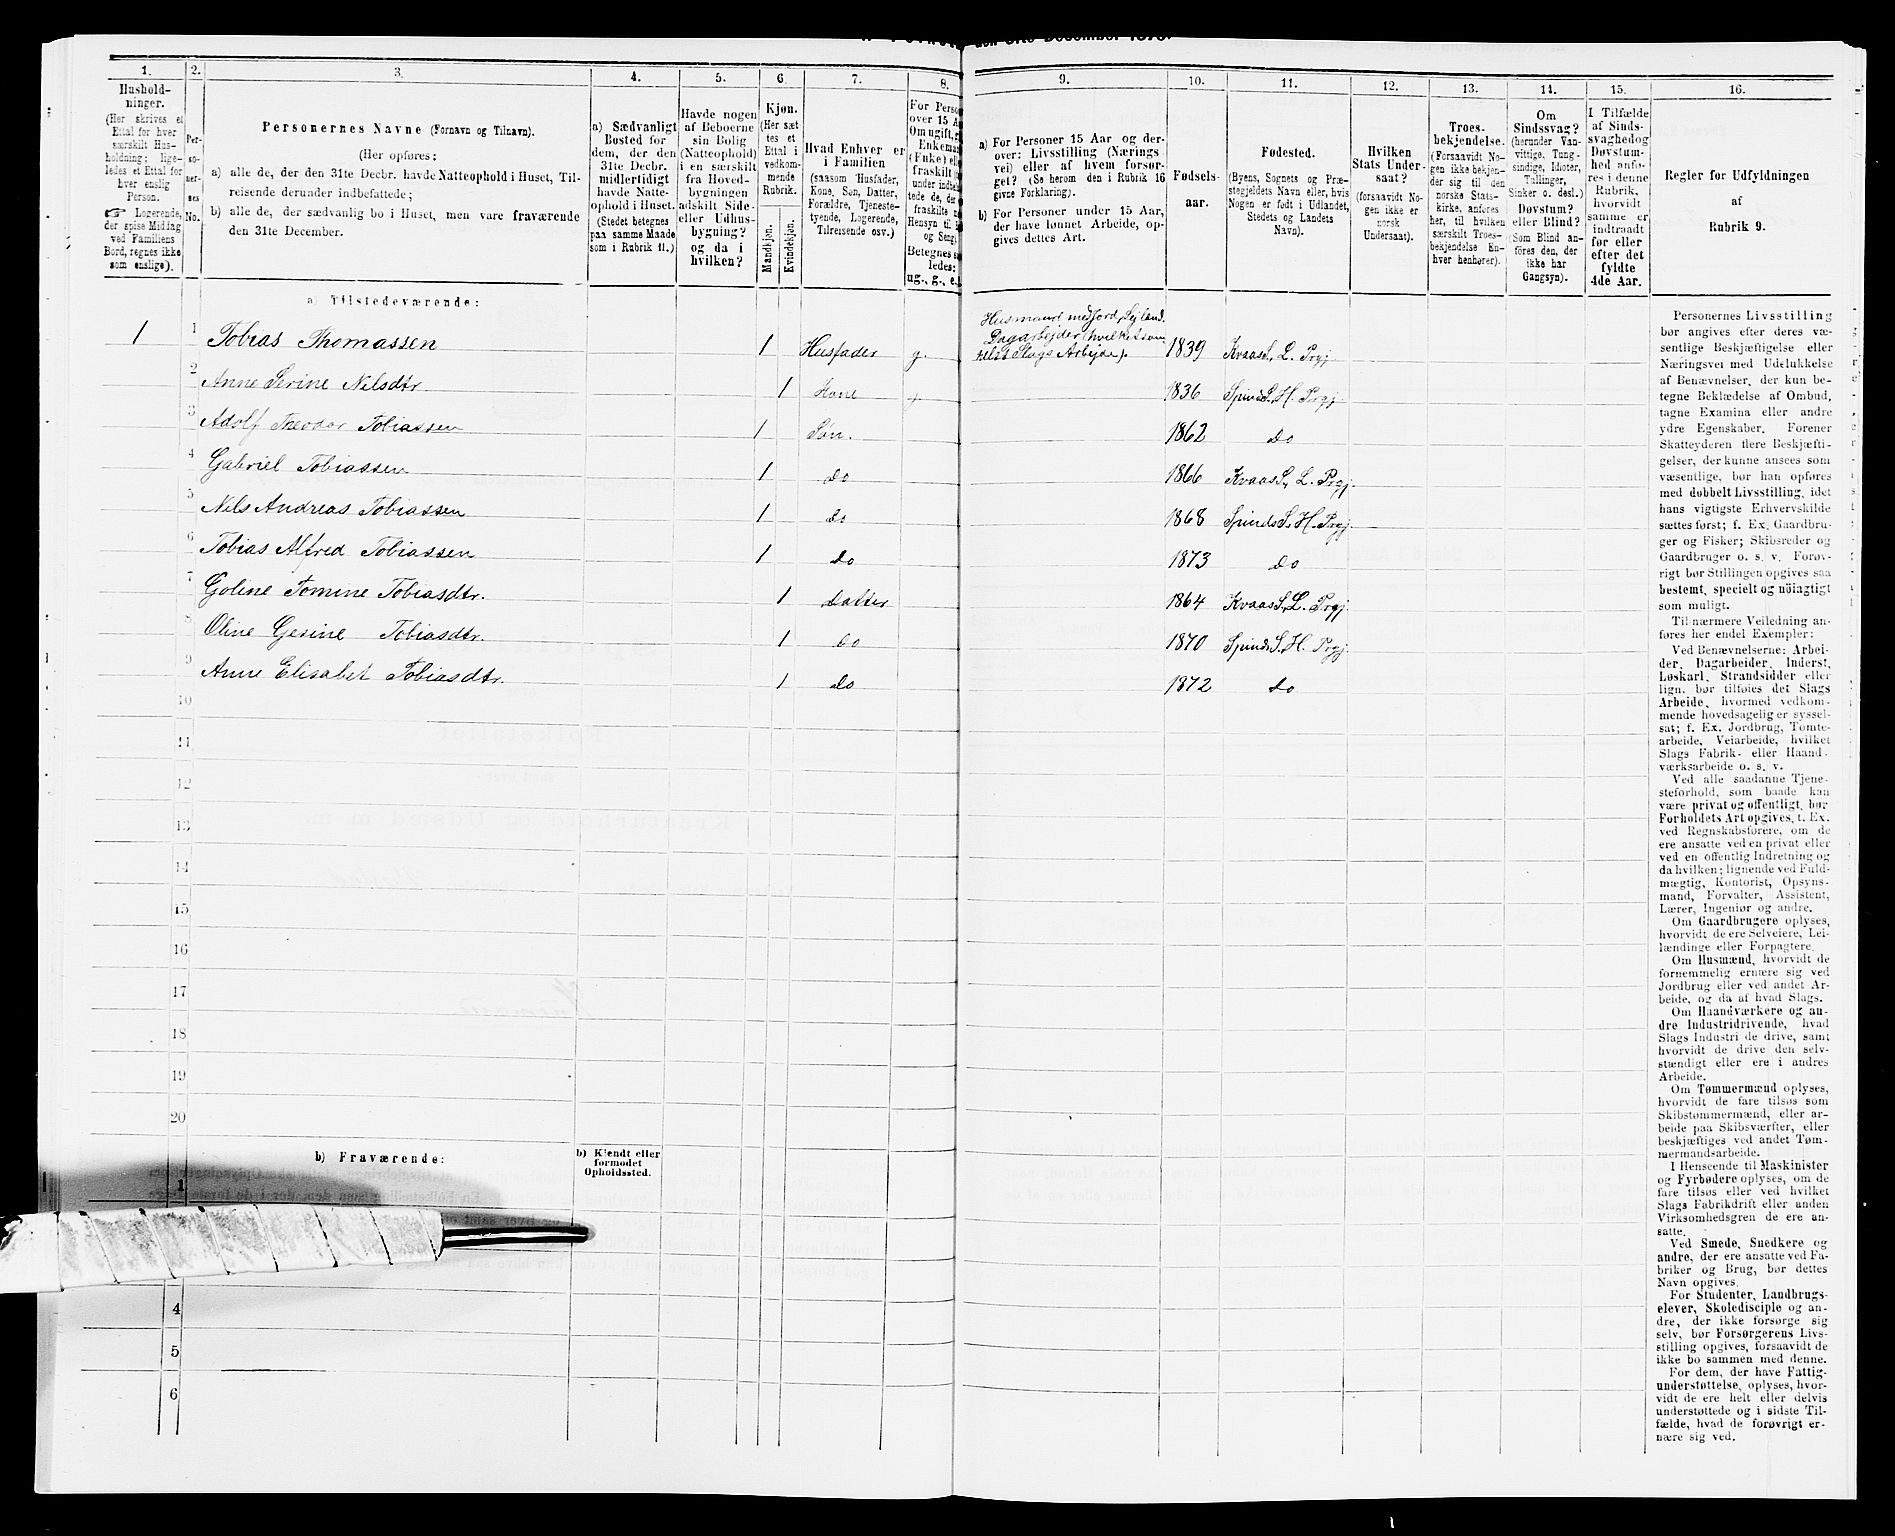 den 31te December 1875.
1.
Hushold-
ninger.
(Her skrives et
Ettal for hver
særskilt Hus-
holdning; lige-
ledes et Ettal for
hver enslig
Person.
☞ Logerende,
der spise Middag
ved Familiens
Bord, regnes ikke
som enslige).
2.
Per-
so-
ner-
nes
No.
3.
Personernes Navne (Fornavn og Tilnavn).
(Her opføres:
a) alle de, der den 31te Decbr. havde Natteophold i Huset, Til-
reisende derunder indbefattede;
b) alle de, der sædvanlig bo i Huset, men vare fraværende
den 31te December.
4.
a) Sædvanligt
Bosted for
dem, der den
31te Decbr.
midlertidigt
havde Natte-
ophold i Huset.
(Stedet betegnes
paa samme Maade
som i Rubrik 11.)
5.
Havde nogen
af Beboerne
sin Bolig
(Natteophold)
i en særskilt
fra Hoved-
bygningen
adskilt Side-
eller Udhus-
bygning?
og da i
hvilken?
6.
Kjøn.
(Her sæt
tes et
Ettal i
vedkom-
mende
Rubrik.
Mandkjøn.
Kvindekjøn.
7.
Hvad Enhver er
i Familien
(saasom Husfader,
Kone, Søn, Datter,
Forældre, Tjeneste-
tyende, Logerende,
Tilreisende osv.)
8.
For Perso
over 15 A
Om ugift, g
Enkema
(Enke) el
fraskilt
under indbe
tede de, de
fraskilte
Hensyn til
og Seng.
Betegnes s
ledes:
ug., g., e.
9.
a) For Personer 15 Aar og der-
over: Livsstilling (Nærings
vei) eller af hvem forsør-
get? (Se herom den i Rubrik 16
givne Forklaring).
b) For Personer under 15 Aar,
der have lønnet Arbeide, op-
gives dettes Art.
10.
Fødsels-
aar.
11.
Fødested.
(Byens, Sognets og Præ-
stegjeldets Navn eller, hvis
Nogen er født i Udlandet,
Stedets og Landets
Navn).
12.
Hvilken
Stats Under-
saat?
(forsaavidt No-
gen ikke er
norsk
Undersaat).
13.
Troes-
bekjendelse.
(Forsaavidt No-
gen ikke bekjen-
der sig til den
norske Stats-
kirke, anføres
her, til hvilken
særskilt Troes-
bekjendelse En-
hver henhører).
14.
Om
Sindssvag?
(herunder Van-
vittige, Tung-
sindige, Idioter,
Tullinger,
Sinker o. desl.)
Døvstum?
eller Blind?
(Som Blind an-
føres den, der
ikke har
Gangsyn).
15.
I Tilfælde
af Sinds-
svaghed og
Døvstum-
hed anfø-
res i denne
Rubrik,
hvorvidt
samme er
indtraadt
før eller
efter det
fyldte
4de Aar.
16.
Regler for Udfyldningen
af
Rubrik 9.
a) Tilstedeværende:
Husmand med Jord, Sejland.
Dagarbejder (hvilketsom
helst Slags Arbejde).
1 1 Tobias Thomassen 1 Husfader g. 1839 Kvaas S, L. Prgj
2 Anne Serine Nilsdtr 1 Kone g 1836 Spinds S. H. Prgj.
3 Adolf Theodor Tobiassen 1 Søn. 1862 do
4 Gabriel Tobiassen 1 do 1866 Kvaas S, L. Prgj.
5 Nils Andreas Tobiassen 1 do 1868 Spinds S, H. Prgj.
6 Tobias Alfred Tobiassen 1 do 1873 do
7 Goline Tomine Tobiasdtr. 1 datter 1864 Kvaas S, L. Prgj.
8 Oline Gesine Tobiasdtr. 1 do 1870 Spinds S. H. Prgj.
9 Anne Elisabet Tobiasdtr. 1 do 1872 do
10
11
12
13
14
15
16
17
18
19
20
b) Fraværende:
b) Kjendt eller
formodet
Opholdssted.
1
4
5
6
Personernes Livsstilling
bør angives efter deres væ-
sentlige Beskjæftigelse eller
Næringsvei med Udelukkelse
af Benævnelser, der kun be-
tegne Beklædelse af Ombud,
tagne Examina eller andre
ydre Egenskaber. Forener
Skatteyderen flere Beskjæfti-
gelser, der kunne ansees som
væsentlige, bør han opføres
med dobbelt Livsstilling, idet
hans vigtigste Erhvervskilde
sættes først; f. Ex. Gaardbru-
ger og Fisker; Skibsreder og
Gaardbruger o. s. v. Forøv-
rigt bør Stillingen opgives saa
bestemt, specielt og nöiagtigt
som muligt.
Til nærmere Veiledning an-
føres her endel Exempler:
Ved Benævnelserne: Arbei-
der, Dagarbeider, Inderst,
Løskarl, Strandsidder eller
lign. bør tilføies det Slags
Arbeide, hvormed vedkom-
mende hovedsagelig er syssel-
sat; f. Ex. Jordbrug, Tomte-
arbeide, Veiarbeide, hvilket
Slags Fabrik- eller Haand-
værksarbeide o. s. v.
Ved alle saadanne Tjene-
steforhold, som baade kan
være privat og offentligt, bør
Forholdets Art opgives, t. Ex.
ved Regnskabsførere, om de
ere ansatte ved en privat eller
ved en offentlig Indretning og
da hvilken; lignende ved Fuld-
mægtig, Kontorist, Opsyns-
mand, Forvalter, Assistent,
Lærer, Ingeniør og andre.
Om Gaardbrugere oplyses,
hvorvidt de ere Selveiere, Lei-
lændinge eller Forpagtere.
Om Husmænd, hvorvidt de
fornemmelig ernære sig ved
Jordbrug eller ved andet Ar-
beide, og da af hvad Slags.
Om Haandværkere og an-
dre Industridrivende, hvad
Slags Industri de drive, samt
hvorvidt de drive den selv-
stændigt eller ere i andres
Arbeide.
Om Tømmermænd oplyses,
hvorvidt de fare tilsøs som
Skibstømmermænd, eller ar-
beide paa Skibsværfter, eller
beskjæftiges ved andet Tøm-
mermandsarbeide.
I Henseende til Maskinister
og Fyrbødere oplyses, om de
fare tilsøs eller ved hvilket
Slags Fabrikdrift eller anden
Virksomhedsgren de ere an-
satte.
Ved Smede, Snedkere og
andre, der ere ansatte ved Fa-
briker og Brug, bør dettes
Navn opgives.
For Studenter, Landbrugs-
elever, Skoledisciple og an-
dre, der ikke forsørge sig
selv, bør Forsørgerens Livs-
stilling opgives, forsaavidt de
ikke bo sammen med denne.
For dem, der have Fattig-
understøttelse, oplyses, hvor-
vidt de ere helt eller delvis
understøttede og i sidste Til-
fælde, hvad de forøvrigt er-
nære sig ved.